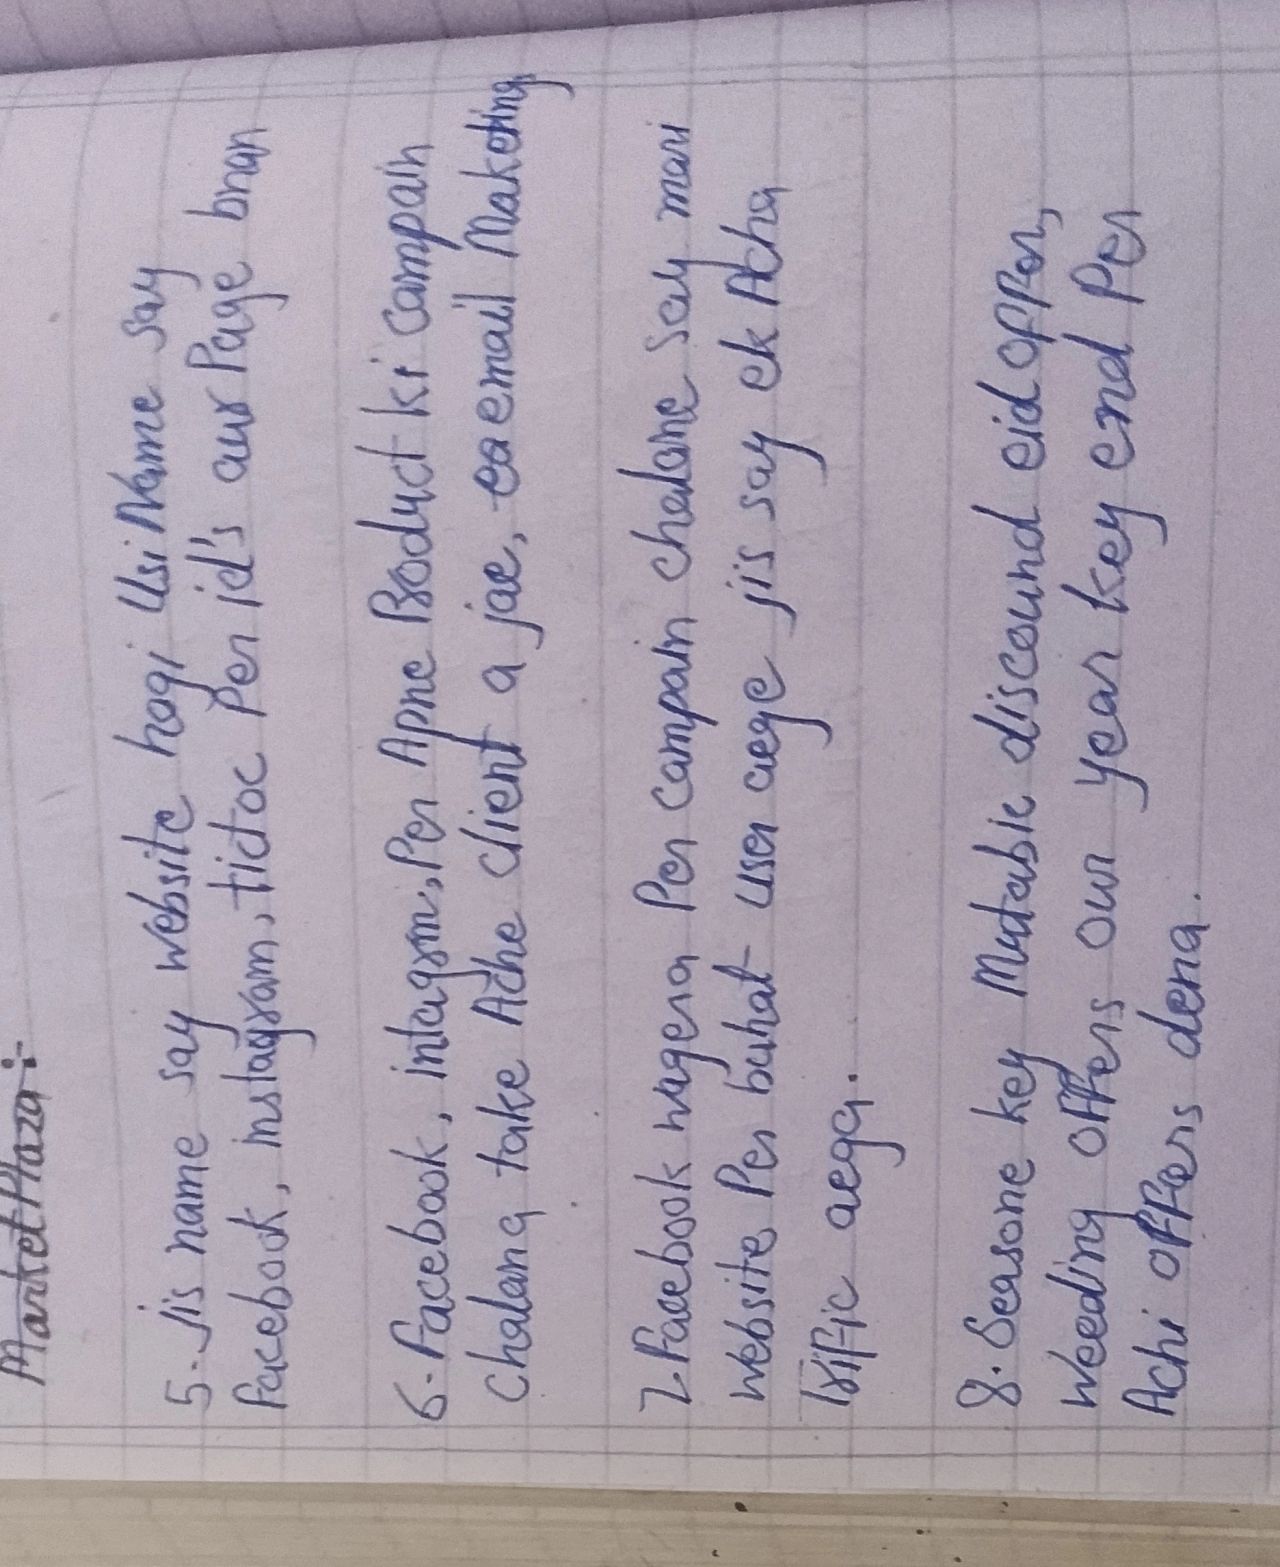 Market Plaza:-
5- Jis name say website hogi Usi Name say
Facebook, instagram, tictoc Per id's aur Page bnan
6- Facebook, intagrm, Per Apne Product ki campain
Chalana take Ache client a jae, email Maketing
7. Facebook wagera Per campain chalane say mari
website Per bahat user aege jis say ek Acha
triffic aega.
8. Seasone key Mutabic discound eid offer,
weeding offers our year key end Per
Achi offers dena.